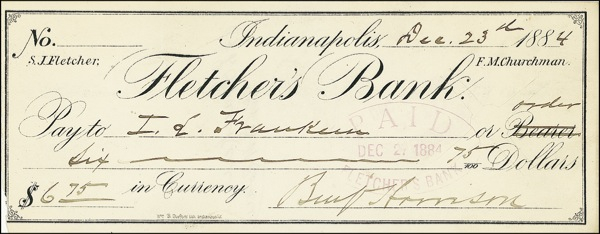 No. Indianapolis, Dec. 23d 1884
S.J. Fletcher, F.M. Churchman.
Fletcher's Bank.
order
Pay to I. L. Franken or Bearer
PAID
DEC 27 1884
FLETCHER'S BANK
Six 75/100 Dollars
$ 6 75 in Currency. Benj Harrison